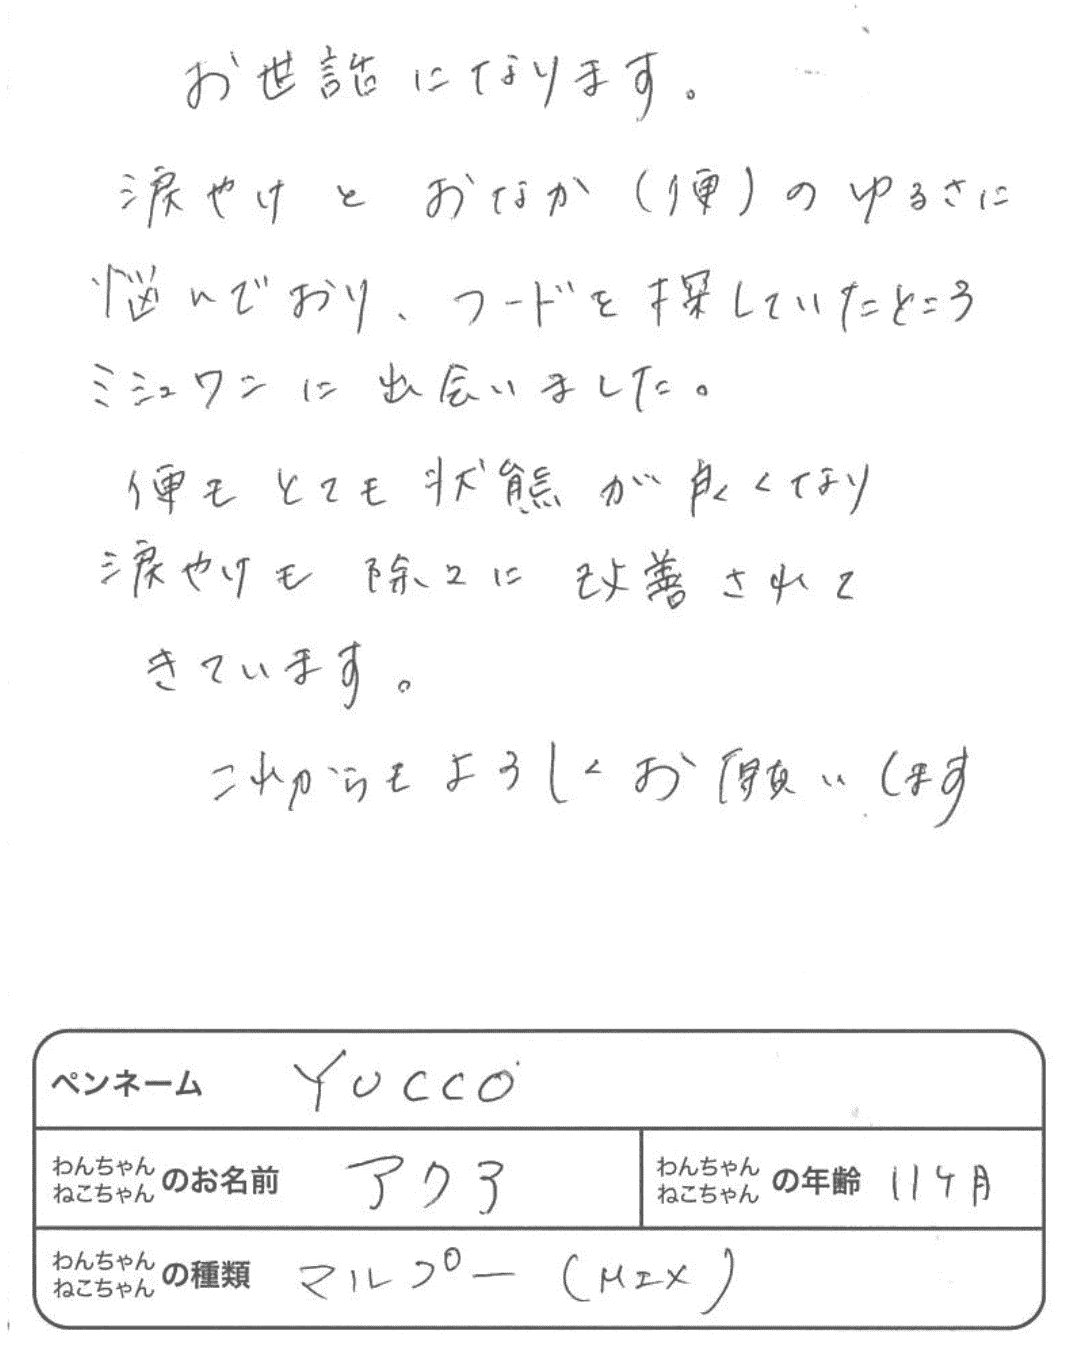 お世話になります。
涙やけと おなか(便)のゆるさに
悩んでおり、フードを探していたところ
ミシュワンに出会いました。
便もとても状態が良くなり
涙やけも除々に改善されて
きています。
これからもよろしくお願いします
ペンネーム YUCCO
わんちゃん
ねこちゃん のお名前 アクア
わんちゃん
ねこちゃん の年齢 11ケ月
わんちゃん
ねこちゃん の種類 マルプー(MIX)